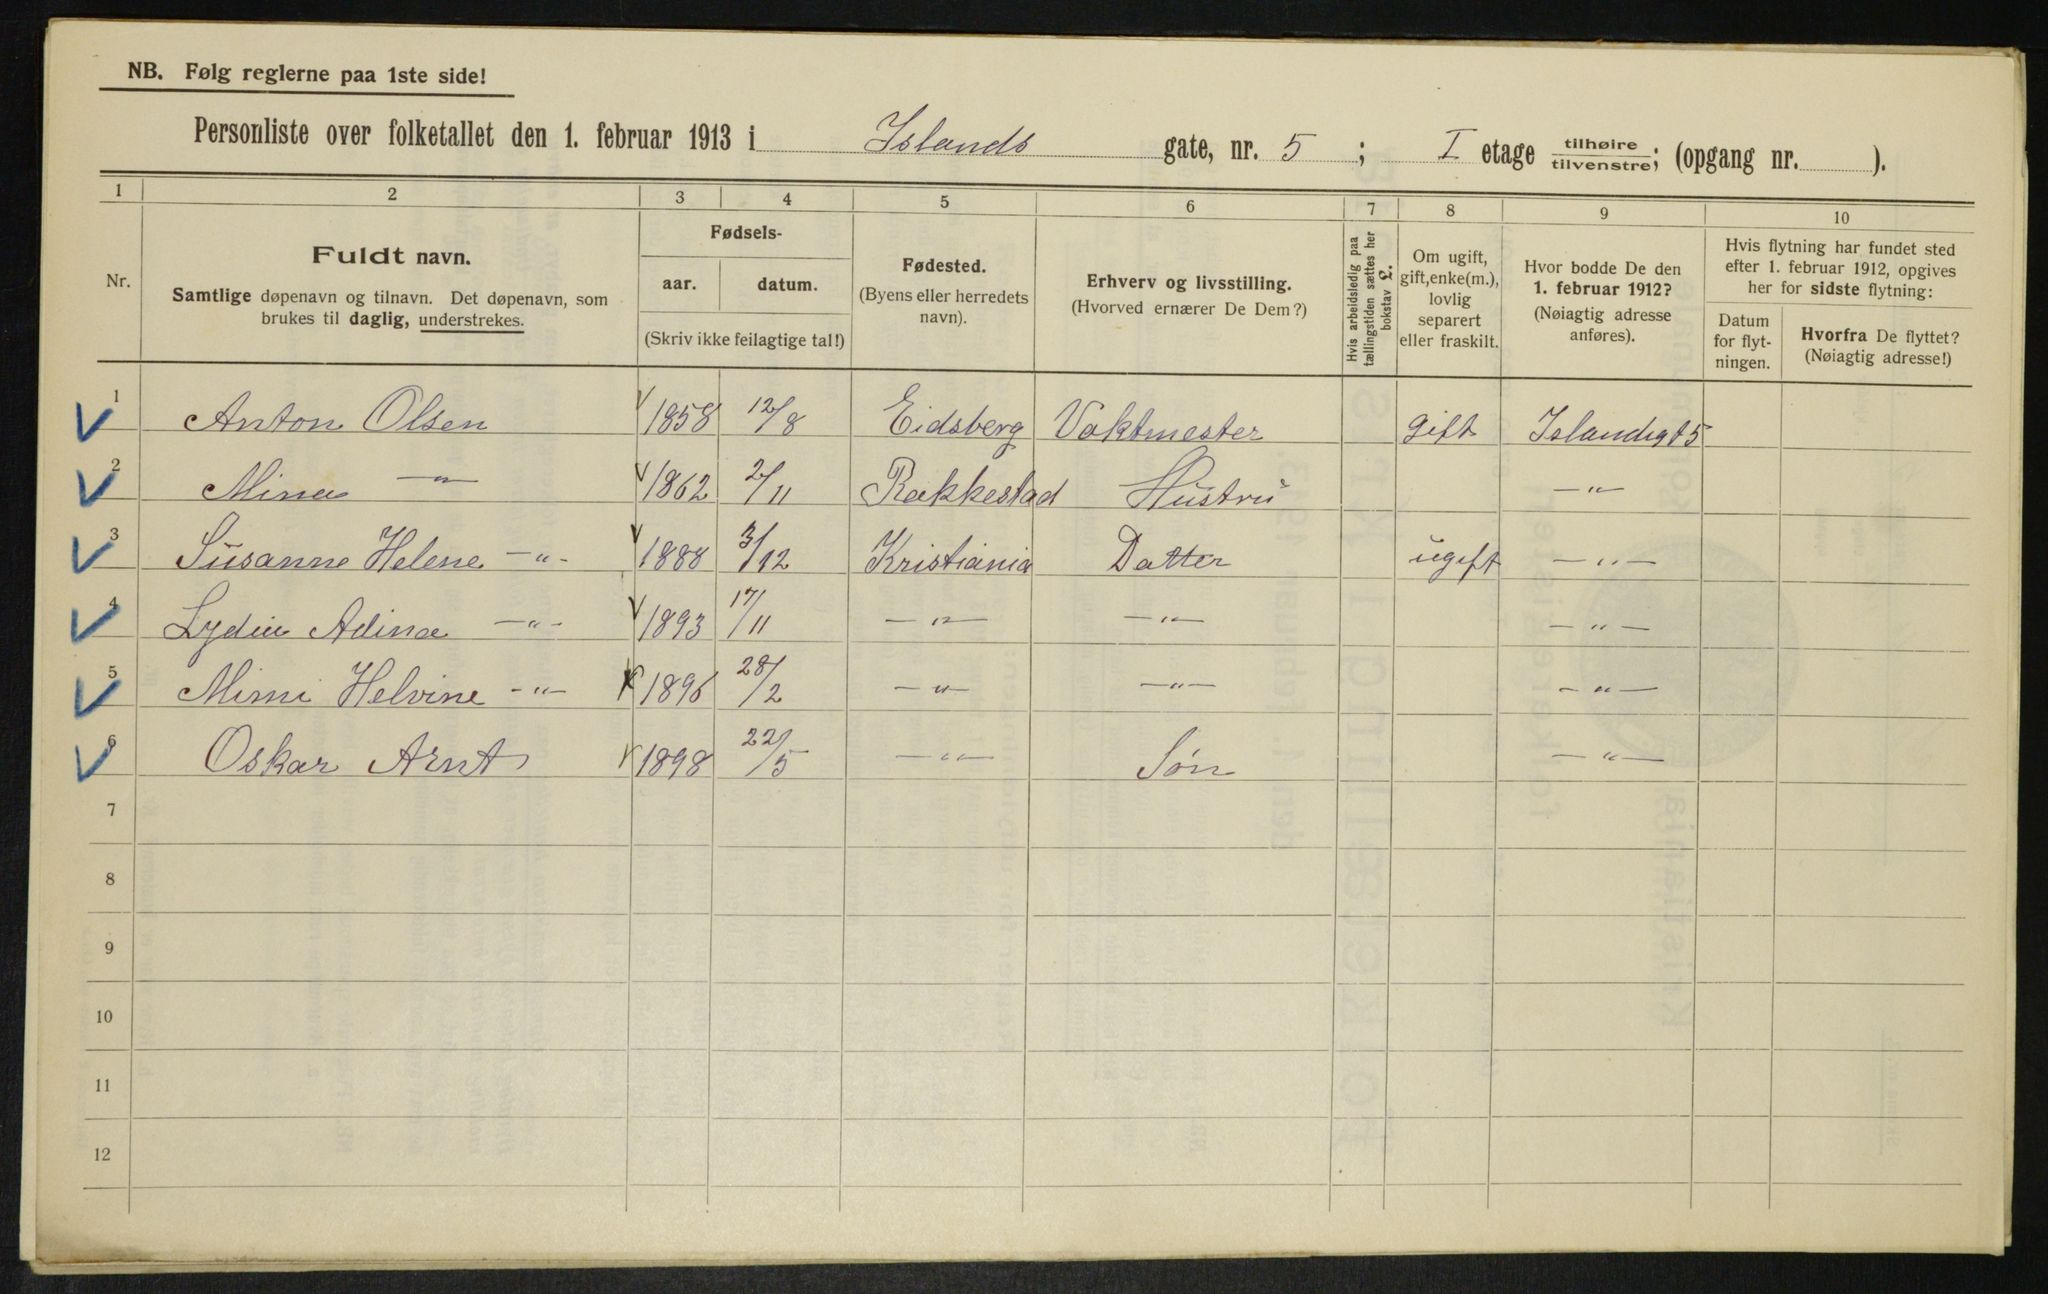 NB. Følg reglerne paa 1ste side!
Personliste over folketallet den 1. februar 1913 i Islands gate, nr. 5 ; I etage tilhøire tilvenstre; (opgang nr. ).
1 2 3 4 5 6 7 8 9 10
Nr.
Fuldt navn.
Samtlige døpenavn og tilnavn. Det døpenavn, som
brukes til daglig, understrekes.
Fødsels-
aar. datum.
(Skriv ikke feilagtige tal!)
Fødested.
(Byens eller herredets
navn).
Erhverv og livsstilling.
(Hvorved ernærer De Dem?)
Hvis arbeidsledig paa
tællingstiden sættes her
bokstav L.
Om ugift,
gift, enke(m.),
lovlig
separert
eller fraskilt.
Hvor bodde De den
1. februar 1912?
(Nøiagtig adresse
anføres).
Hvis flytning har fundet sted
efter 1. februar 1912, opgives
her for sidste flytning:
Datum
for flyt-
ningen.
Hvorfra De flyttet?
(Nøiagtig adresse!)
1 Anton Olsen 1858 12/8 Eidsberg Vaktmester gift Islandsgt 5
2 Mina —"— 1862 2/11 Rakkestad Hustru —"—
3 Susanne Helene —"— 1888 3/12 Kristiania Datter ugift —"—
4 Lydia Adina —"— 1893 17/11 —"— —"— —"—
5 Mimi Helvine —"— 1896 28/2 —"— —"— —"—
6 Oskar Arnt 1898 22/5 —"— Søn —"—
7
8
9
10
11
12